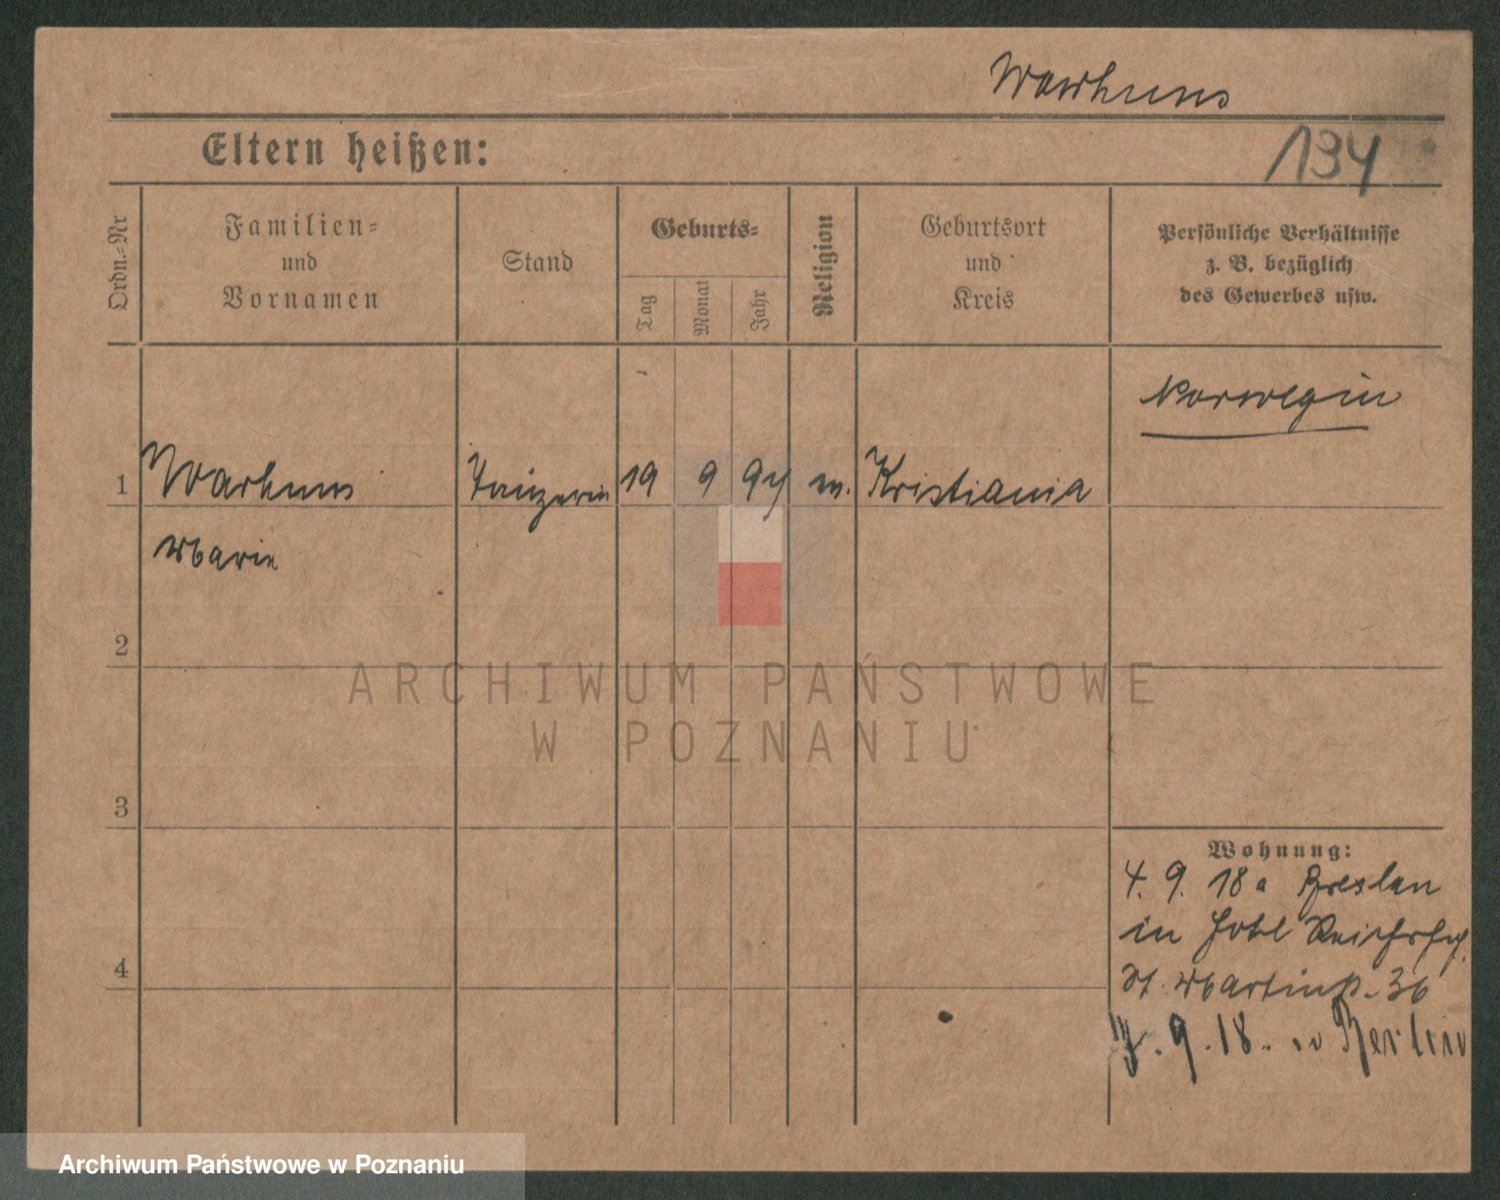 Warhuns
Eltern heißen:
134
Ordn.-Nr
Familien-
und
Vornamen
Stand
Geburts-
Tag
Monat
Jahr
Religion
Geburtsort
und
Kreis
Persönliche Verhältnisse
z. B. bezüglich
des Gewerbes usw.
Norwegin
1 Warhuns Tänzerin 19 9 94 Kristiania
Marie
2
ARCHIWUM PAŃSTWOWE
W POZNANIU
3
Wohnung:
4. 9. 18 a Breslau
in Hotl
4
St. Martinst. 36
9. 18. Berlin
Archiwum Państwowe w Poznaniu